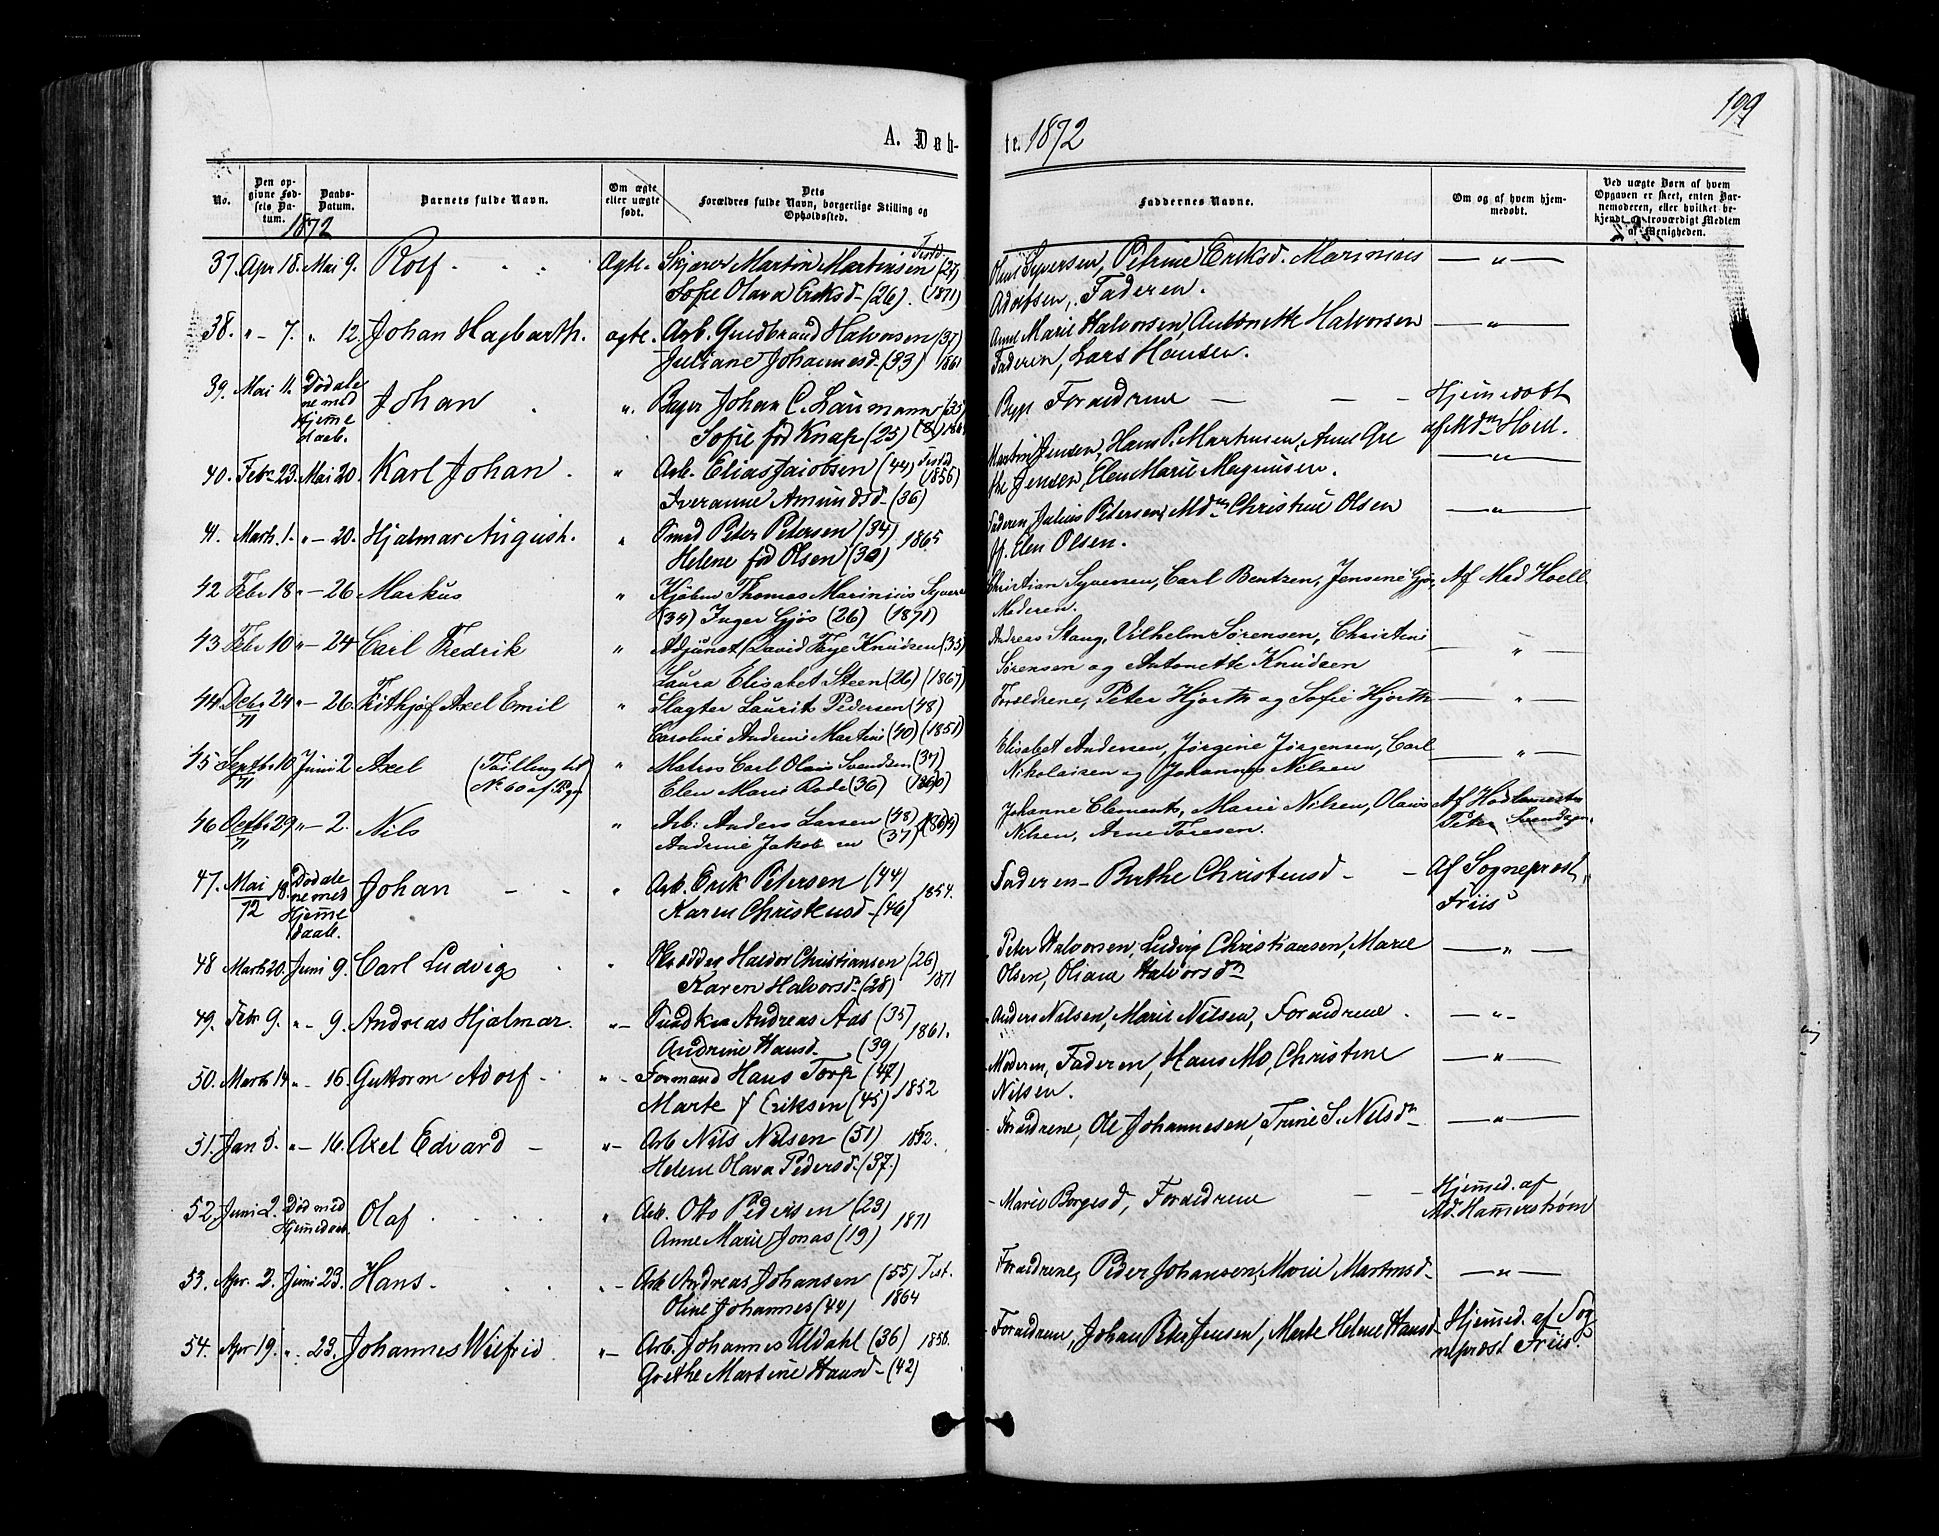 199
A. Døb- te. 1872
No.
Den opgivne Fødsels Datum.
Daabs-Datum.
1872
Barnets fulde Navn.
Om ægte eller uægte født.
Dets Forældres fulde Navn, borgerlige Stilling og Opholdssted.
Faddernes Navne.
Om og af hvem hjemmedøbt.
Ved uægte Børn af hvem Opgaven er skeet, enten Barnemoderen, eller hvilket bekjendt og troværdigt Medlem af Menigheden.
37. Apr 18. Mai 9. Rolf. Ægte. Skjærer Martin Martinsen (27) Tistd. Olaus Syversen, Petrine Eriksd. Marinius — " —
Sofie Olava Eriksd. (26). (1871) Adolfsen, Faderen.
38. " - 7. " 12. Johan Hagbarth. ægte. Arb. Gudbrand Halvorsen (37) Anne Marie Halvorsen, Antonette Halvorsen — " —
Juliane Johannesd. (33) 1861 Faderen, Lars Hansen.
39. Mai 11. Død alene med Hjemmedaab. Johan " Bager Johan C. Laumann (35) Byp. Forældrene — Hjemmedøbt
Sofie fød Knap (25) af Mdm Hoell.
40. Febr. 23. Mai 20. Karl Johan. " Arb. Elias Jacobsen (44) Tistd. (1856) Martin Jensen, Hans P. Martinsen, Anne Gre — " —
Iveranne Amundsd. (36) the Jensen, Elen Marie Magnusen.
41. Marts. 1. " - 20. Hjalmar August. " Smed Peter Petersen (34) 1865 Faderen, Julius Petersen, Mdm Christine Olsen — " —
Helene fød Olsen (30) Jf. Elen Olsen.
42 Febr 18 " - 26 Markus " Kjøbm Thomas Marinius Syvers Christian Syversen, Carl Bentzen, Jensene Gjøs, Af Mad Hoell
(34) Inger Gjøs (26) (1871) Moderen.
43 Febr 10 " - 24 Carl Fredrik " Adjunct David Faye Knudsen (35) Andreas Stang, Vilhelm Sørensen, Christine — " —
Laura Elisabet Steen (26) (1867) Sørensen og Antonette Knudsen
44 Debr 24 /71 " - 26. Frithjof Axel Emil " Slagter Laurits Pedersen (48) Forældrene, Peter Hjorth og Sofie Hjorth — " —
Caroline Andrine Martine (40) (1851)
45 Septbr 10 /71 Juni 2 Axel (Tvilling til No 60 af Pgr) " Matros Carl Olaus Svendsen (37) Elisabet Andersen, Jørgine Jørgensen, Carl — " —
Elen Marie Rode (36) (1860) Nikolaisen og Johannes Nilsen
46 Octbr 29 /71 " - 2. Nils " Arb: Anders Larsen (48) Johanne Clements, Marie Nilsen, Olaus
Andrine Jakobsen (37) Nilsen, Arne Toresen. Peter Svendsen.
47. Mai 18. /72 Død alene med Hjemmedaab. Johan " Arb. Erik Petersen (44) 1854. Faderen - Berthe Christensd - Af Sogneprest
Karen Christensd (46) Friis
48 Marts 20. Juni 9. Carl Ludvig " Skrædder Haldor Christiansen (26) Peter Halvorsen, Ludvig Christiansen, Marie — " —
Karen Halvorsd. (28) 1871 Olsen, Oliane Halvorsdn
49. Febr 9. " - 9. Andreas Hjalmar. " - Andreas Aas (35) Anders Nilsen, Marie Nilsen, Forældrene. — " —
Andrine Hansd. (39) 1861.
50. Marts 14 " - 16. Guttorm Adolf. " - Formand Hans Torp (47) Moderen, Faderen, Hans Mo, Christine — " —
Marte f Eriksen (45) 1852 Nilsen.
51. Jan 5. " - 16. Axel Edvard " - Arb Nils Nilsen (51) Forældrene, Ole Johannesen, Trine S. Nilsdn — " —
Helene Olava Pedersd. (37.)
52. Juni 2. Død med Hjemmedaab Olaf " Arb. Otto Pedersen (23) Marie Borgesd, Forældrene Hjemmed. af
Anne Marie Jonas (19) 1871 Md. Hammerstrøm
53. Apr. 2. Juni 23. Hans. " - Arb Andreas Johansen (55) Tist. Forældrene, Peder Johansen, Marie Martinsd — " —
Oline Johannes (44) 1864
54. Apr 19. " 23. Johannes Wilfrid " - Arb. Johannes Uldahl (36) 1858. Forældrene, Johan Peter Jensen, Marte Helene Hansd Hjemmed. af Sog
Grethe Martine Hansd (42) neprest Friis.